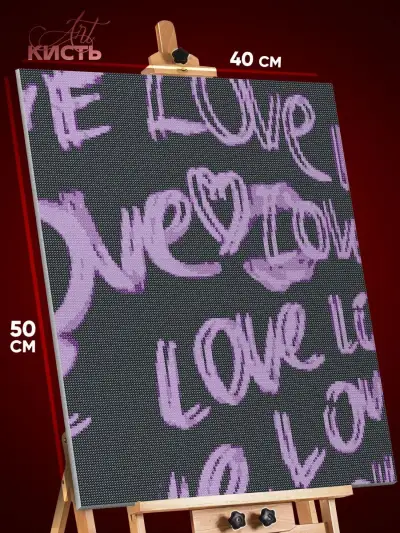 Art
КИСТЬ
40 СМ
50
СМ
E LOVE LOVE
OVE LOVE
LOVE LO
E LOVE